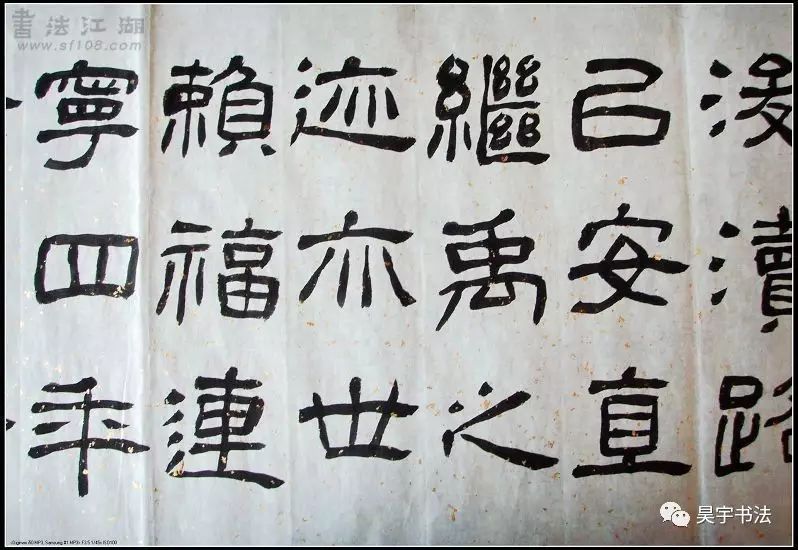 書法江湖
www.sf108.com
浚瀆路
㠯安直
繼禹之
迹亦世
賴福建
寧四年
昊宇书法